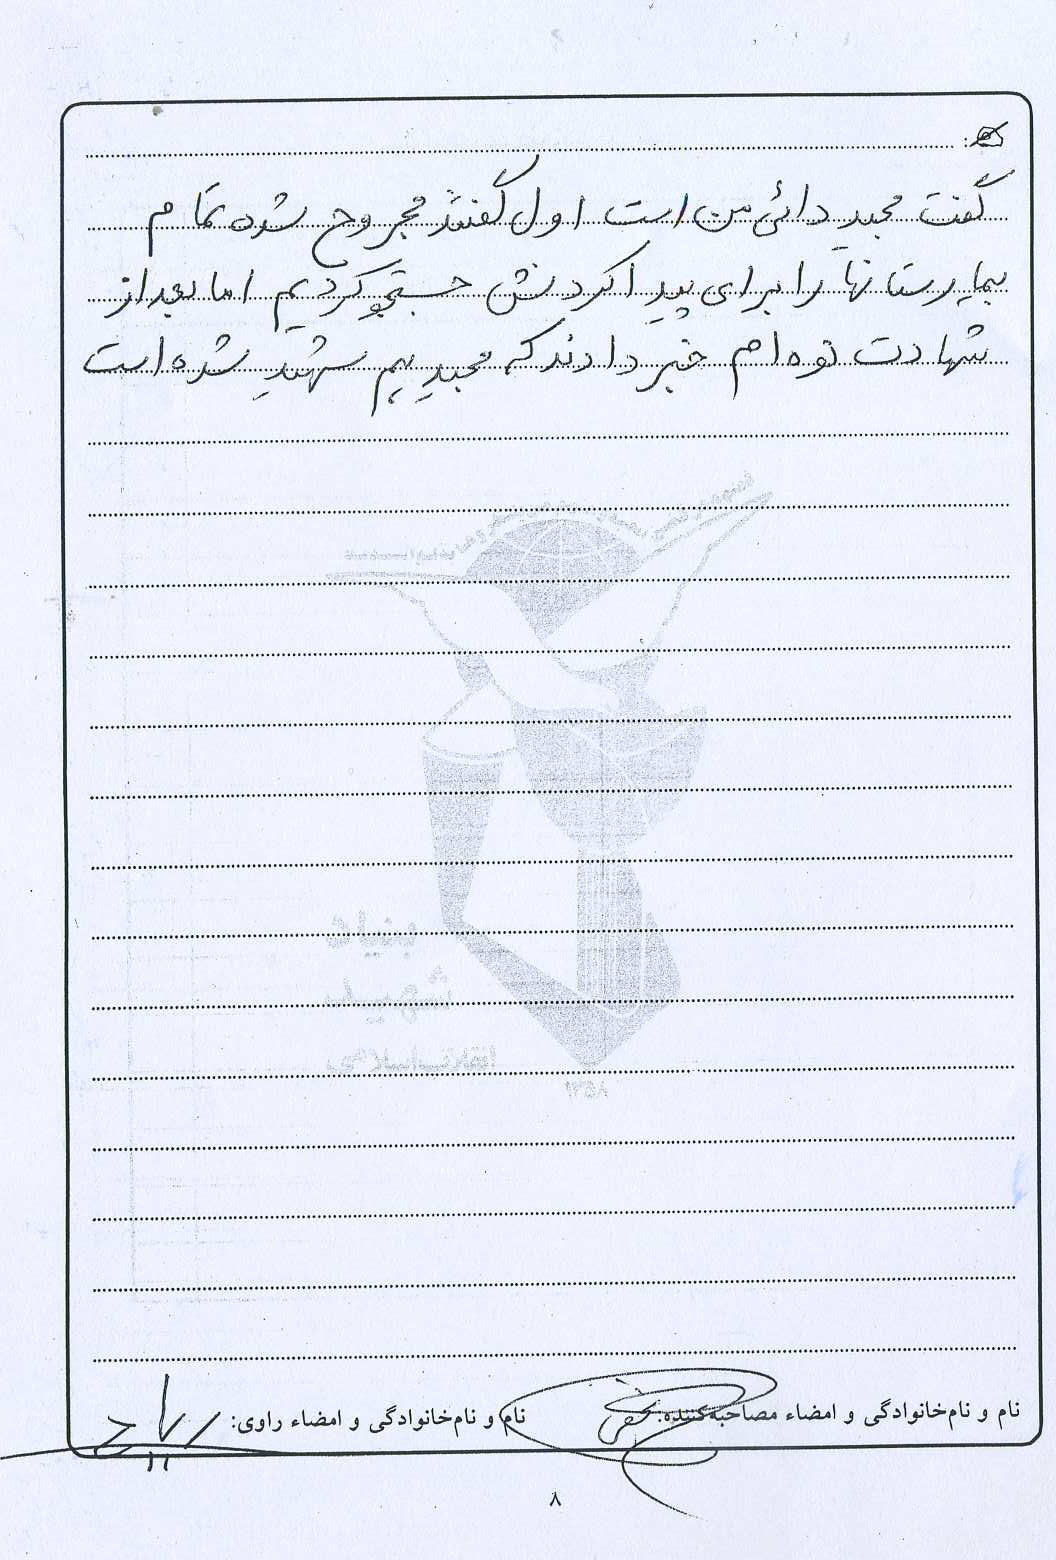 گفت مجید دائی من است اول گفتند مجروح شده تمام
بیمارستانها را برای پیدا کردنش جستجو کردیم اما بعد از
شهادت نوه ام خبر دادند که مجید هم شهید شده است
بنیاد
شهید
انقلاب اسلامی
۱۳۵۸
نام و نام‌خانوادگی و امضاء مصاحبه‌کننده:
نام و نام‌خانوادگی و امضاء راوی:
۸